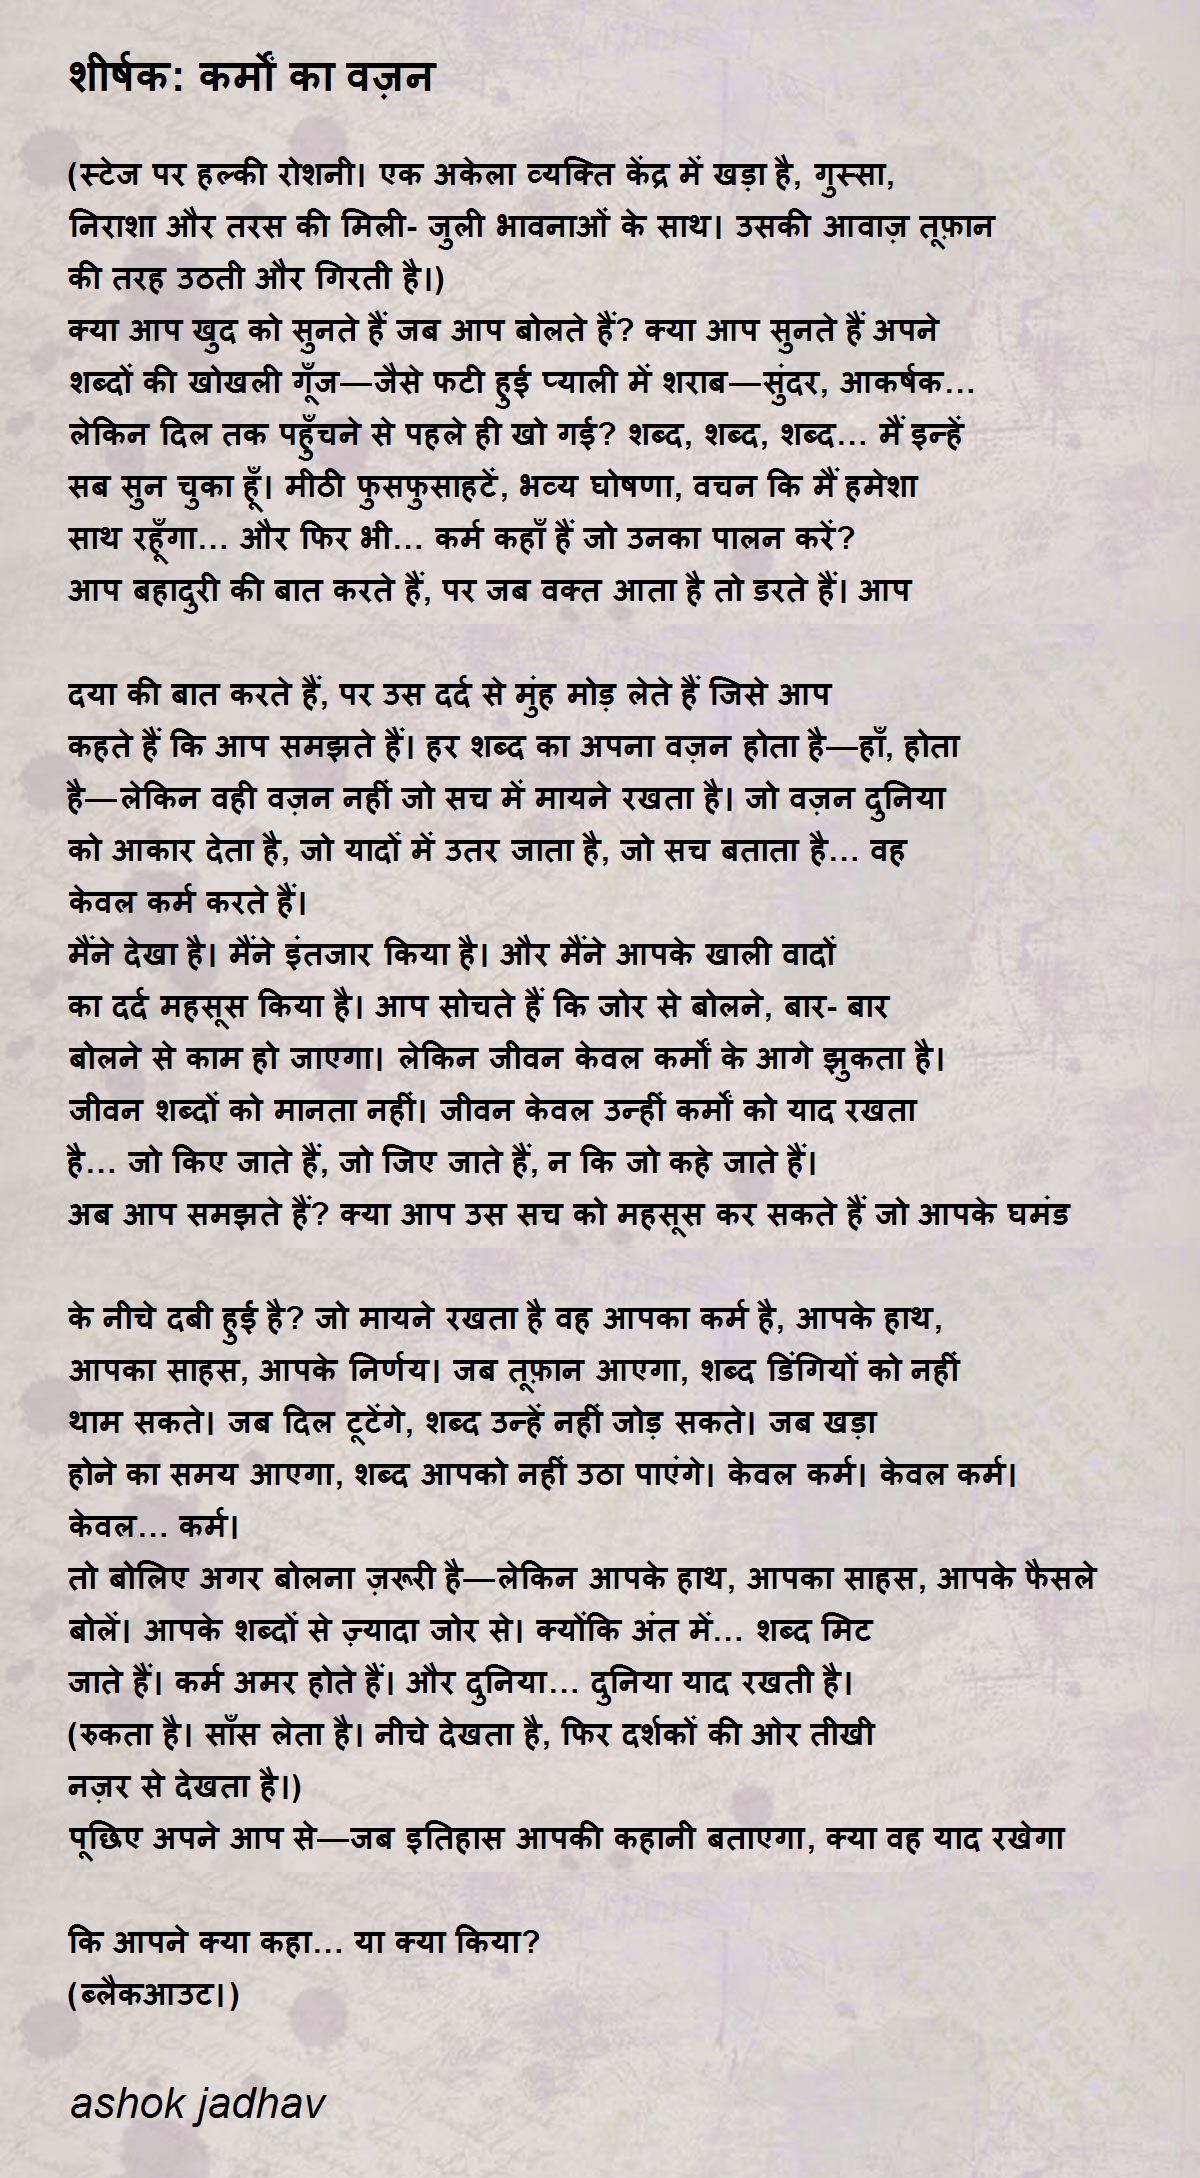 शीर्षक: कर्मों का वज़न
(स्टेज पर हल्की रोशनी। एक अकेला व्यक्ति केंद्र में खड़ा है, गुस्सा,
निराशा और तरस की मिली- जुली भावनाओं के साथ। उसकी आवाज़ तूफ़ान
की तरह उठती और गिरती है।)
क्या आप खुद को सुनते हैं जब आप बोलते हैं? क्या आप सुनते हैं अपने
शब्दों की खोखली गूँज—जैसे फटी हुई प्याली में शराब—सुंदर, आकर्षक…
लेकिन दिल तक पहुँचने से पहले ही खो गई? शब्द, शब्द, शब्द… मैं इन्हें
सब सुन चुका हूँ। मीठी फुसफुसाहटें, भव्य घोषणा, वचन कि मैं हमेशा
साथ रहूँगा… और फिर भी… कर्म कहाँ हैं जो उनका पालन करें?
आप बहादुरी की बात करते हैं, पर जब वक्त आता है तो डरते हैं। आप
दया की बात करते हैं, पर उस दर्द से मुंह मोड़ लेते हैं जिसे आप
कहते हैं कि आप समझते हैं। हर शब्द का अपना वज़न होता है—हाँ, होता
है—लेकिन वही वज़न नहीं जो सच में मायने रखता है। जो वज़न दुनिया
को आकार देता है, जो यादों में उतर जाता है, जो सच बताता है… वह
केवल कर्म करते हैं।
मैंने देखा है। मैंने इंतजार किया है। और मैंने आपके खाली वादों
का दर्द महसूस किया है। आप सोचते हैं कि जोर से बोलने, बार- बार
बोलने से काम हो जाएगा। लेकिन जीवन केवल कर्मों के आगे झुकता है।
जीवन शब्दों को मानता नहीं। जीवन केवल उन्हीं कर्मों को याद रखता
है… जो किए जाते हैं, जो जिए जाते हैं, न कि जो कहे जाते हैं।
अब आप समझते हैं? क्या आप उस सच को महसूस कर सकते हैं जो आपके घमंड
के नीचे दबी हुई है? जो मायने रखता है वह आपका कर्म है, आपके हाथ,
आपका साहस, आपके निर्णय। जब तूफ़ान आएगा, शब्द डिंगियों को नहीं
थाम सकते। जब दिल टूटेंगे, शब्द उन्हें नहीं जोड़ सकते। जब खड़ा
होने का समय आएगा, शब्द आपको नहीं उठा पाएंगे। केवल कर्म। केवल कर्म।
केवल… कर्म।
तो बोलिए अगर बोलना ज़रूरी है—लेकिन आपके हाथ, आपका साहस, आपके फैसले़
बोलें। आपके शब्दों से ज़्यादा जोर से। क्योंकि अंत में… शब्द मिट
जाते हैं। कर्म अमर होते हैं। और दुनिया… दुनिया याद रखती है।
(रुकता है। साँस लेता है। नीचे देखता है, फिर दर्शकों की ओर तीखी
नज़र से देखता है।)
पूछिए अपने आप से—जब इतिहास आपकी कहानी बताएगा, क्या वह याद रखेगा
कि आपने क्या कहा… या क्या किया?
(ब्लैकआउट।)
ashok jadhav